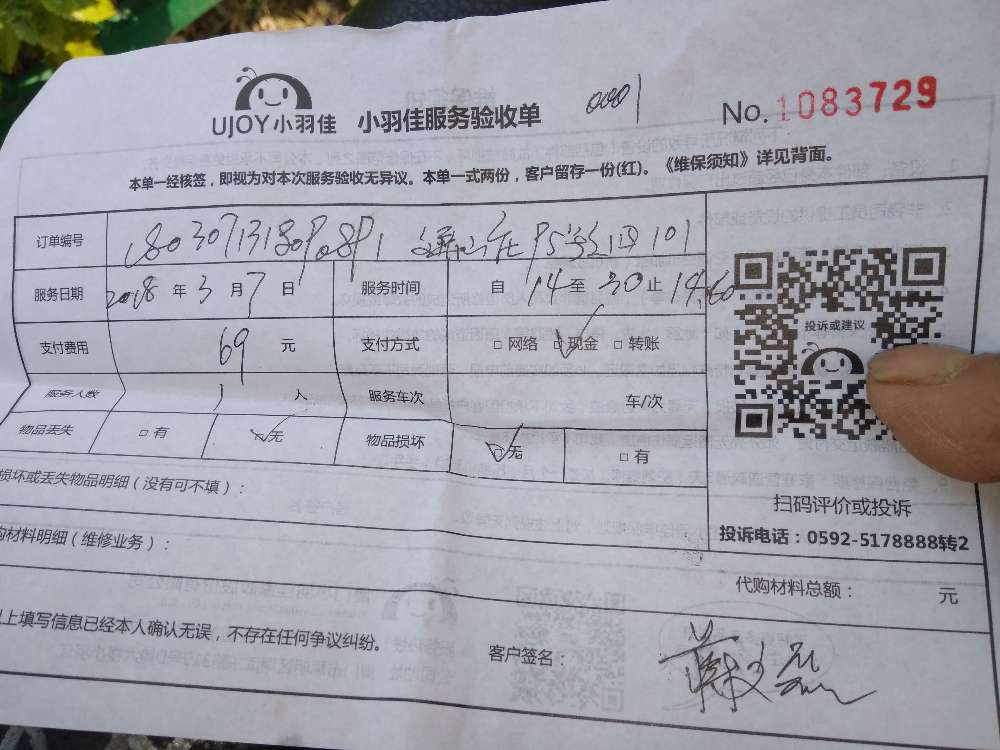 UJOY小羽佳 小羽佳服务验收单 0001 No. 1083729
本单一经核签，即视为对本次服务验收无异议。本单一式两份，客户留存一份(红)。《维保须知》详见背面。
订单编号
服务日期 2018 年 3 月 7 日 服务时间 自 14 至 30 止 14:60
支付费用 69 元 支付方式 □ 网络 □ 现金 □ 转账
服务人数 1 人 服务车次 车/次
物品丢失 □ 有 □ 无 物品损坏 □ 无 □ 有
投诉或建议
损坏或丢失物品明细（没有可不填）：
扫码评价或投诉
购材料明细（维修业务）：
投诉电话：0592-5178888转2
代购材料总额： 元
上填写信息已经本人确认无误，不存在任何争议纠纷。
客户签名：